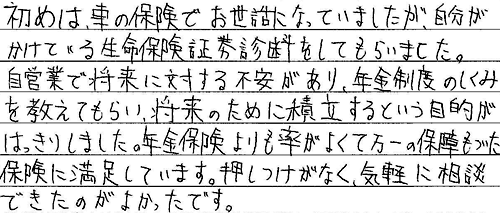 初めは、車の保険でお世話になっていましたが、自分が
かけている生命保険証券診断をしてもらいました。
自営業で将来に対する不安があり、年金制度のしくみ
を教えてもらい、将来のために積立するという目的が
はっきりしました。年金保険よりも率がよくて万一の保障もついた
保険に満足しています。押しつけがなく、気軽に相談
できたのがよかったです。